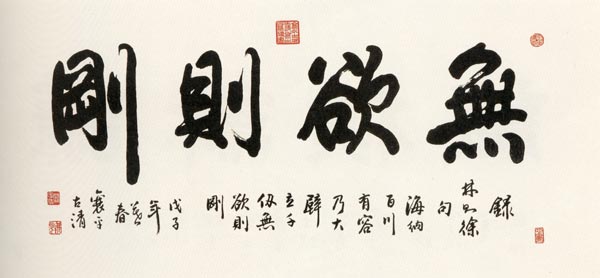 無欲則剛
録
林則徐
句
海納
百川
有容
乃大
壁
立千
仞無
欲則
剛
戊子
年
春
襄平